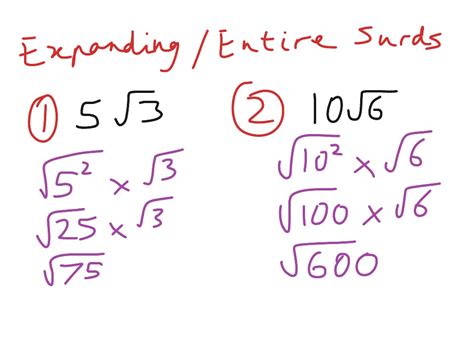 Expanding / Entire Surds
① 5√3
√5² × √3
√25 × √3
√75
② 10√6
√10² × √6
√100 × √6
√600